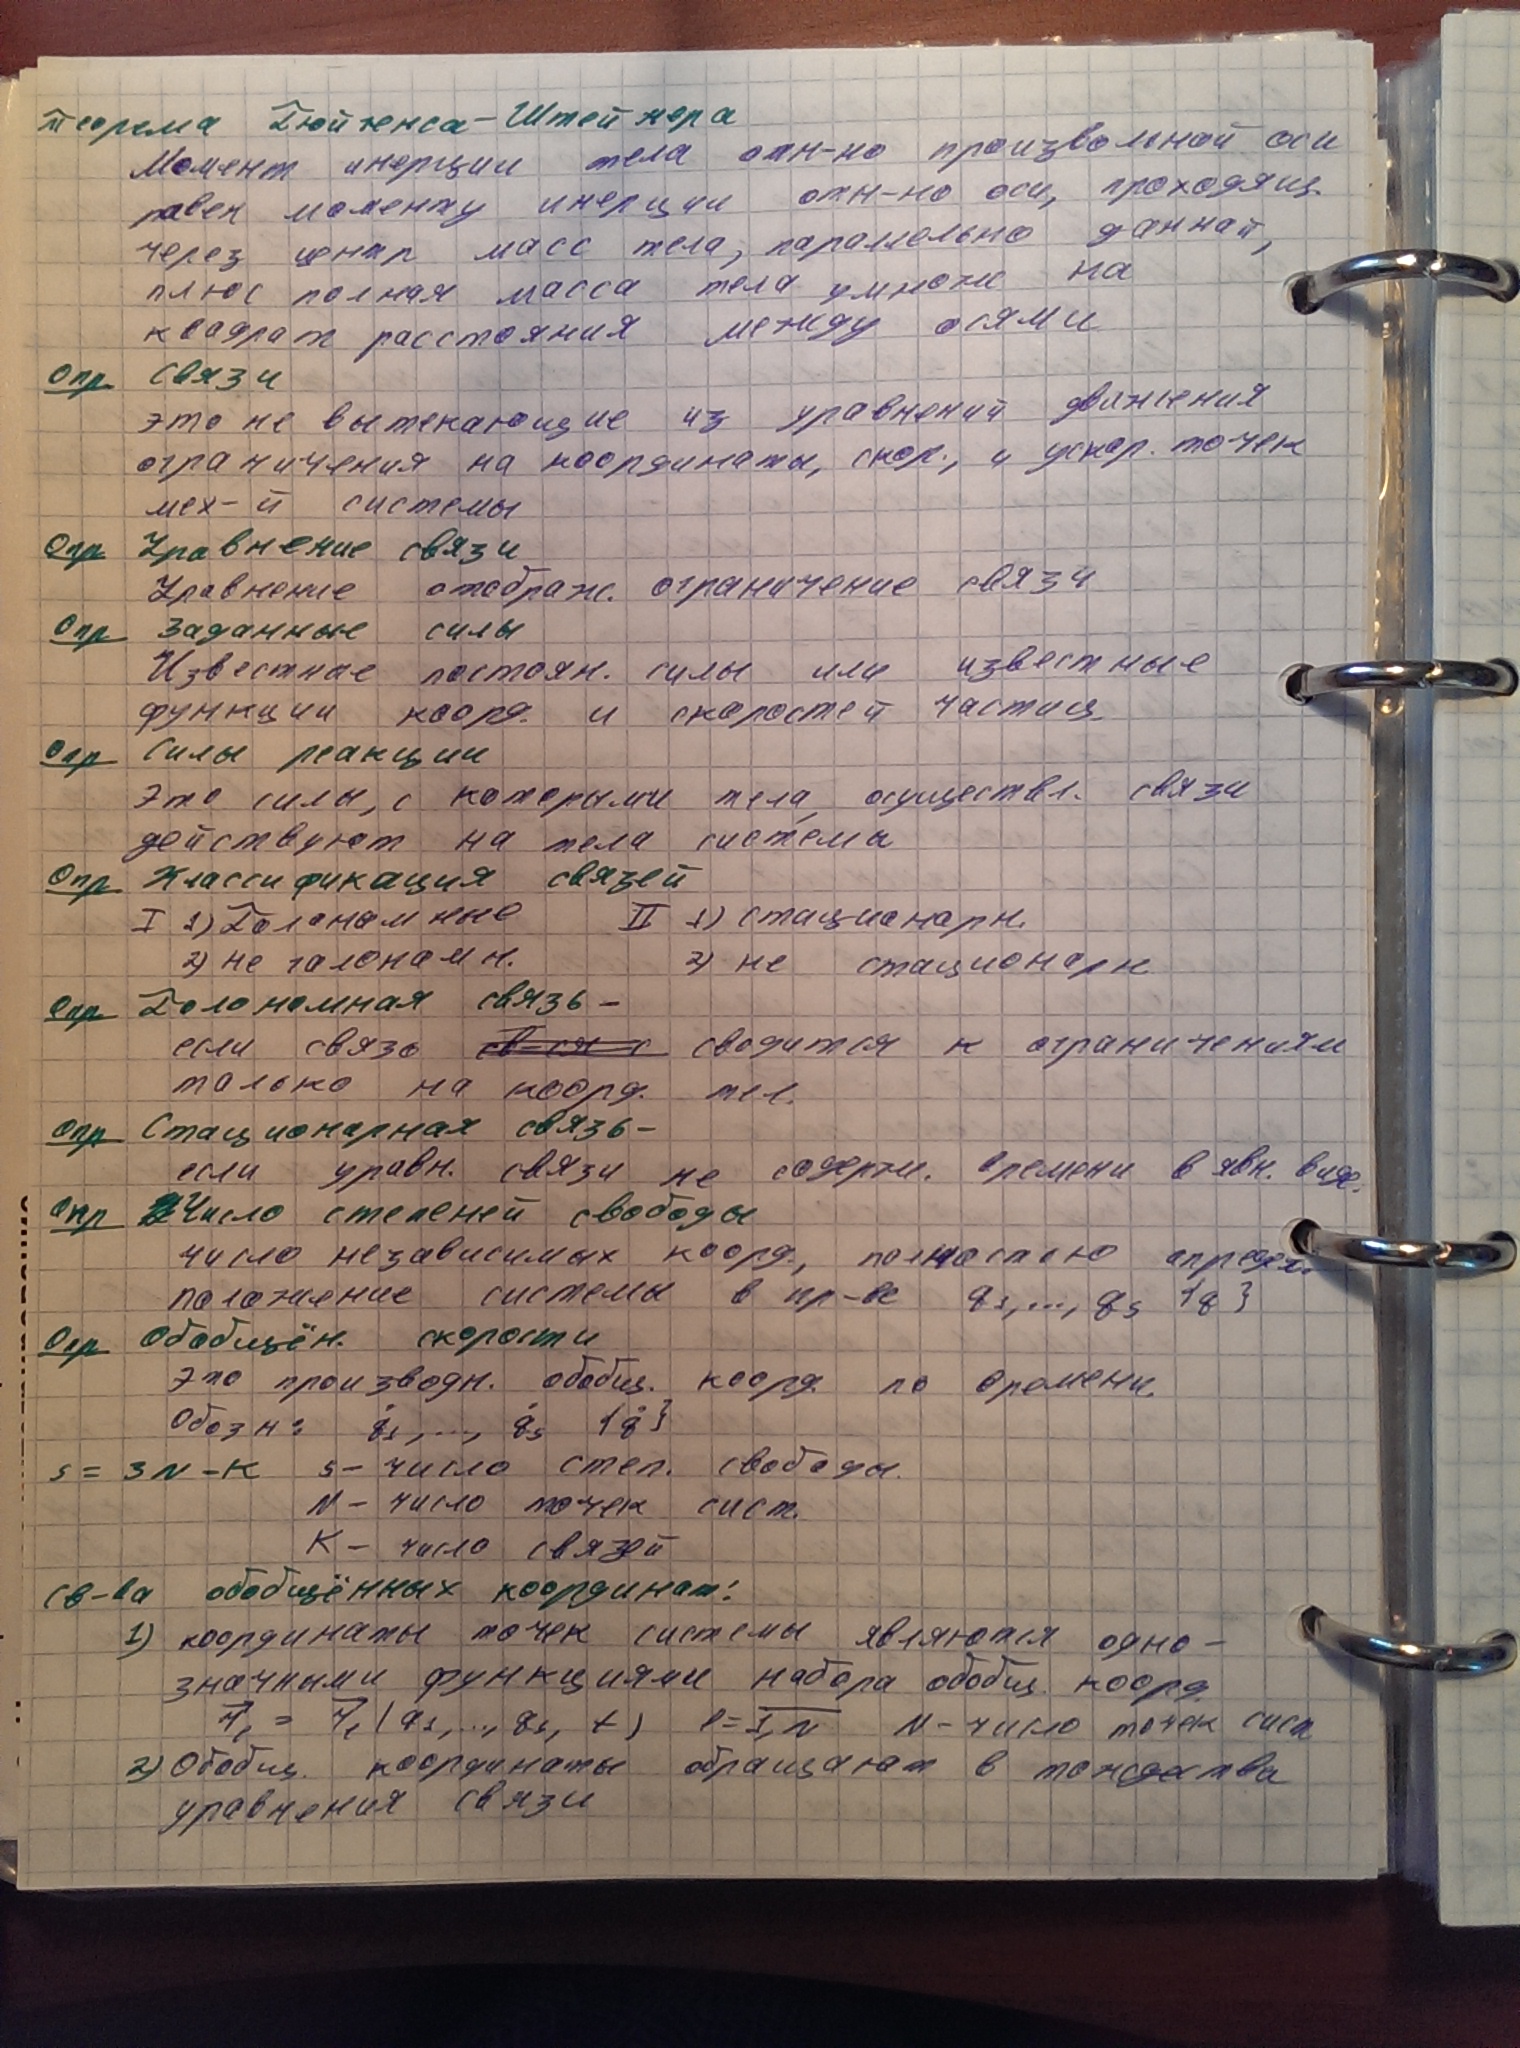 Теорема Гюйгенса-Штейнера
Момент инерции тела отн-но произвольной оси
равен моменту инерции отн-но оси, проходящ.
через центр масс тела, параллельно данной,
плюс полная масса тела умнож на
квадрат расстояния между осями
Опр Связи
это не вытекающие из уравнений движения
ограничения на координаты, скор., и ускор. точек
мех-й системы
Опр Уравнение связи
Уравнение отображ. ограничение связи
Опр Заданные силы
Известные постоян. силы или известные
функции коорд. и скоростей частиц.
Опр Силы реакции
Это силы, с которыми тела, осуществл. связи
действуют на тела системы
Опр Классификация связей
I 1) Голономные II 1) стационарн.
2) не голономн. 2) не стационарн.
Опр Голономная связь -
если связь сводится к ограничениям
только на коорд. тел.
Опр Стационарная связь -
если уравн. связи не содерж. времени в явн. виде.
Опр Число степеней свободы
число независимых коорд., полностью определ.
положение системы в пр-ве q₁,...,qₛ {q}
Опр Обобщён. скорости
Это производн. обобщ. коорд. по времени.
Обозн: q̇₁,...,q̇ₛ {q̇}
s = 3N - K s - число степ. свободы.
N - число точек сист.
K - число связей
Св-ва обобщённых координат:
1) координаты точек системы являются одно-
значными функциями набора обобщ. коорд.
r⃗ᵢ = r⃗ᵢ(q₁,...,qₛ, t) i = 1,N N - число точек сист
2) Обобщ. координаты обращают в тождества
уравнения связи